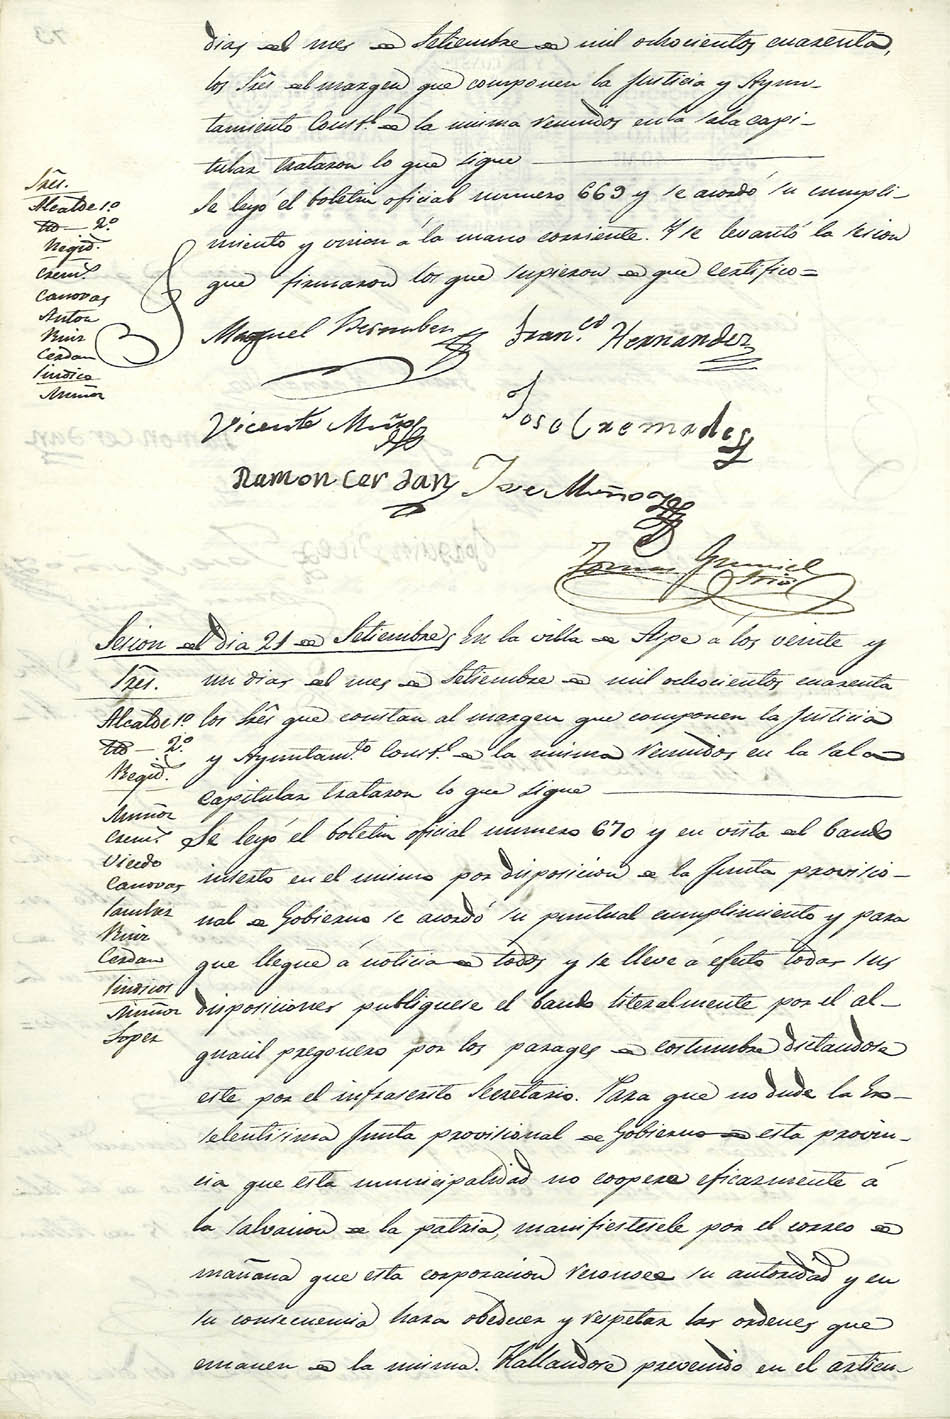 dias del mes de Setiembre de mil ochocientos cuarenta,
los Sres del margen que componen la Justicia y Ayun-
tamiento Const.l de la misma reunidos en la sala capi-
tular trataron lo que sigue
Sres.
Alcalde 1º
Yd — 2º
Regid.s
Crem.s
Canovas
Anton
Ruiz
Cerdan
Sindico
Muñoz
Se leyó el boletin oficial numero 669 y se acordó su cumpli-
miento y union á la mano corriente. Y se levantó la sesion
que firmaron los que supieron de que certifico=
Miguel
Fran.co Hernandez
Vicente Muñoz
Jose Cremades
Ramon Cerdan
Jose Muñoz
Tomas
Srio
Sesion del dia 21 de Setiembre
En la villa de Aspe á los veinte y
un dias del mes de Setiembre de mil ochocientos cuarenta
los Sres que constan al margen que componen la Justicia
y Ayuntam.to Const.l de la misma reunidos en la sala
capitular trataron lo que sigue
Sres.
Alcalde 1º
Yd — 2º
Regid.s
Muñoz
Crem.s
Vicedo
Canovas
Ruiz
Cerdan
Sindicos
Muñoz
Lopez
Se leyó el boletin oficial numero 670 y en vista del bando
inserto en el mismo por disposicion de la Junta provisio-
nal de Gobierno se acordó su puntual cumplimiento y para
que llegue á noticia de todos y se lleve á efecto todas sus
disposiciones publiquese el bando literalmente por el al-
guacil pregonero por los parages de costumbre dictandose
este por el infrascrito Secretario. Para que no dude la Exs-
selentisima Junta provisional de Gobierno de esta provin-
cia que esta municipalidad no coopera eficazmente á
la salvacion de la patria, manifiestesele por el correo de
mañana que esta corporacion reconoce su autoridad y en
su consecuencia hara obedecer y respetar las ordenes que
emanen de la misma. Hallandose prevenido en el articu-